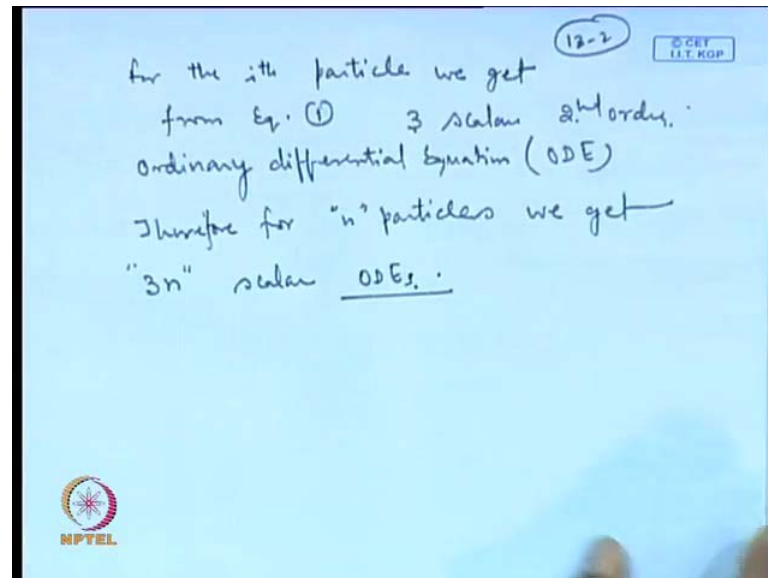 13-2
© CET
I.I.T. KGP
for the ith particle we get
from Eq. ① 3 scalar 2nd order.
ordinary differential Equation (ODE)
Therefore for "n" particles we get
"3n" scalar ODEs.
NPTEL